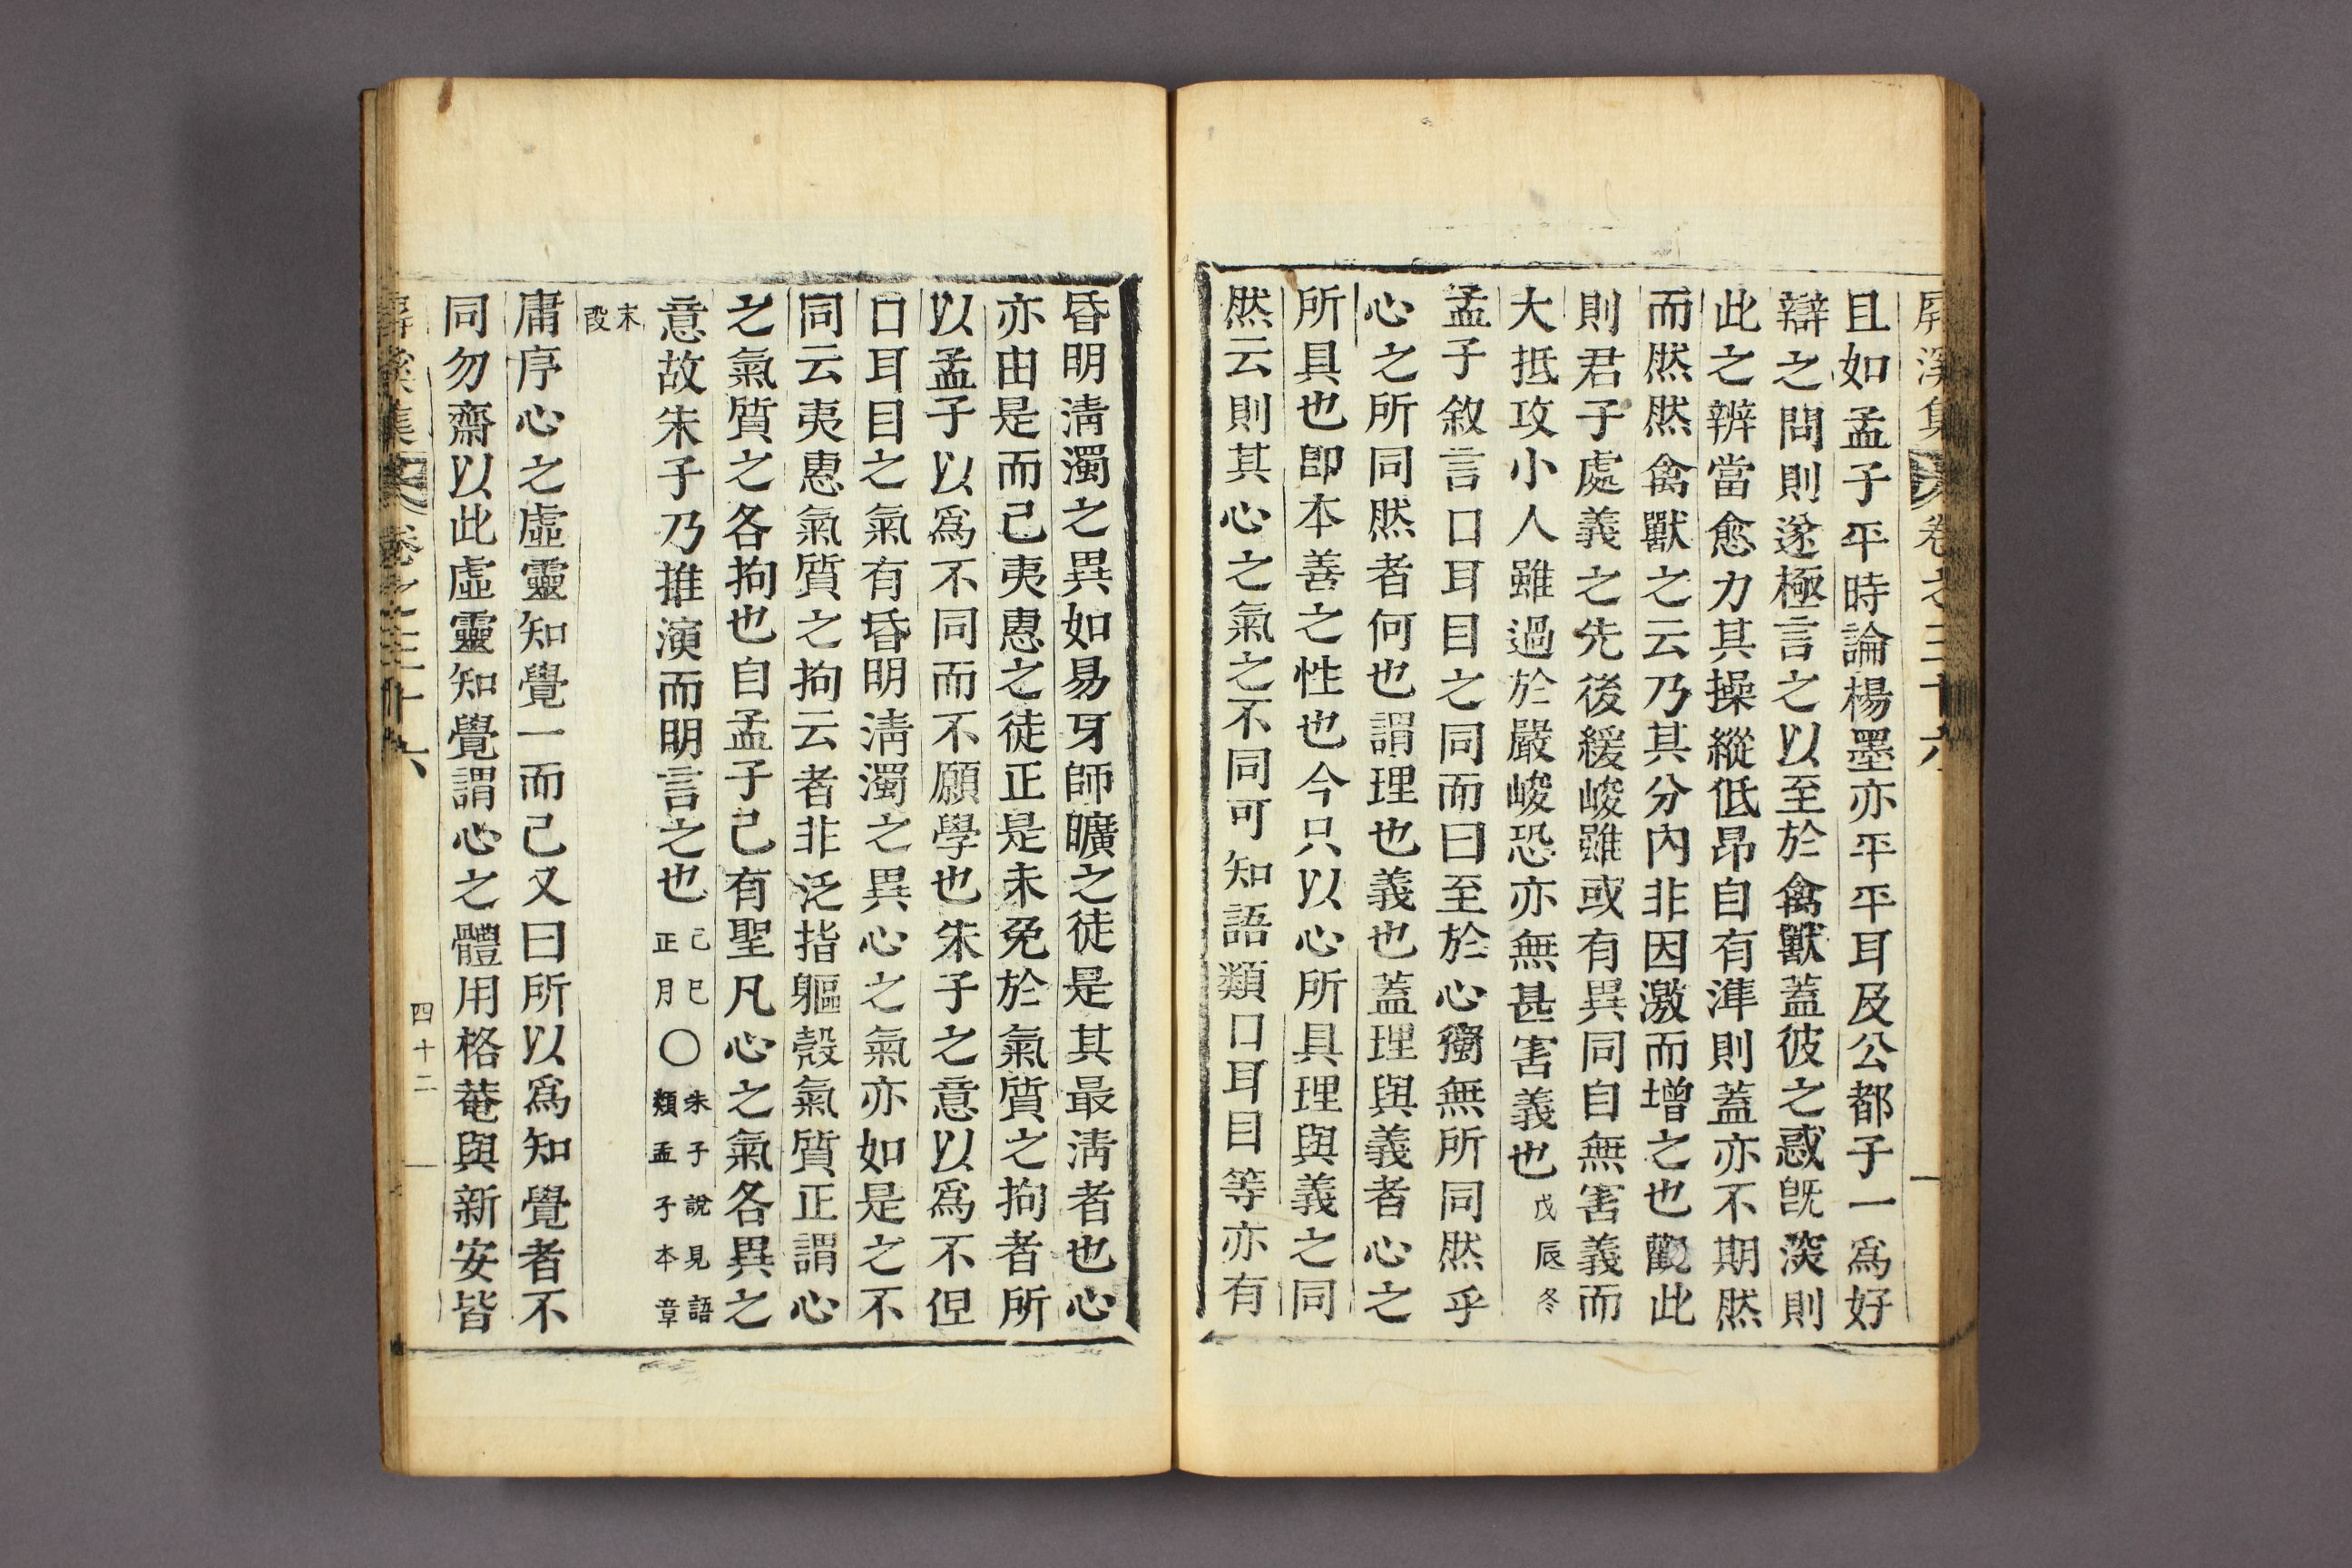 屛溪集 卷之三十六
且如孟子平時論楊墨亦平平耳及公都子一爲好
辯之問則遂極言之以至於禽獸蓋彼之惑旣深則
此之辨當愈力其操縱低昂自有準則蓋亦不期然
而然然禽獸之云乃其分內非因激而增之也觀此
則君子處義之先後緩峻雖或有異同自無害義而
大抵攻小人雖過於嚴峻恐亦無甚害義也戊辰冬
孟子敘言口耳目之同而曰至於心獨無所同然乎
心之所同然者何也謂理也義也蓋理與義者心之
所具也卽本善之性也今只以心所具理與義之同
然云則其心之氣之不同可知語類口耳目等亦有
昏明淸濁之異如易牙師曠之徒是其最淸者也心
亦由是而已夷惠之徒正是未免於氣質之拘者所
以孟子以爲不同而不願學也朱子之意以爲不但
口耳目之氣有昏明淸濁之異心之氣亦如是之不
同云夷惠氣質之拘云者非泛指軀殼氣質正謂心
之氣質之各拘也自孟子已有聖凡心之氣各異之
意故朱子乃推演而明言之也己巳正月○朱子說見語類孟子本章
末段
庸序心之虛靈知覺一而已又曰所以爲知覺者不
同勿齋以此虛靈知覺謂心之體用格菴與新安皆
屛溪集 卷之三十六 四十二